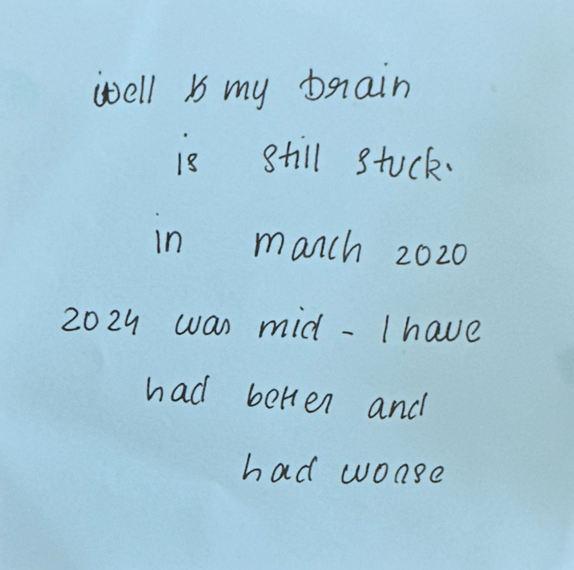 well my brain
is still stuck.
in march 2020
2024 was mid - I have
had better and
had worse